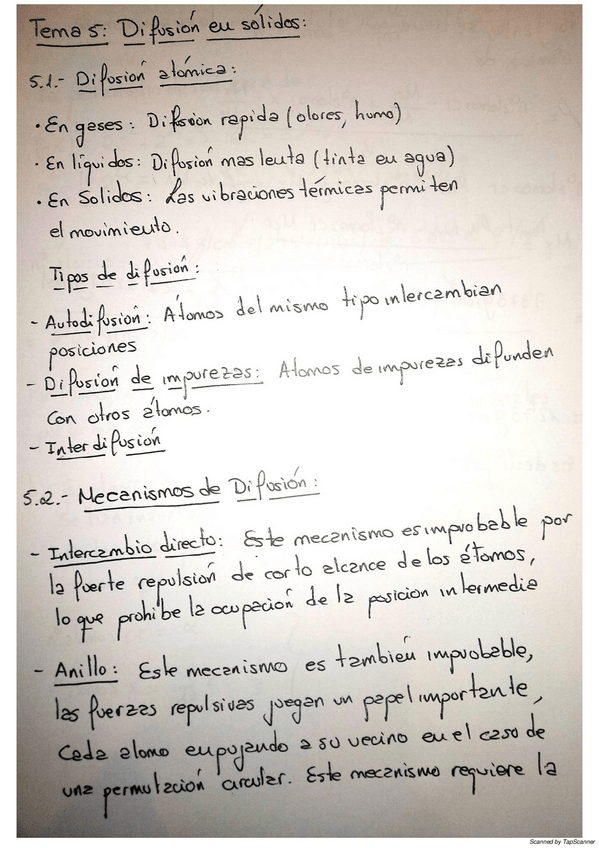 Tema 5: Difusión en sólidos:
5.1.- Difusión atómica:
· En gases: Difusion rapida (olores, humo)
· En líquidos: Difusión mas lenta (tinta en agua)
· En Solidos: Las vibraciones térmicas permiten
el movimiento.
Tipos de difusión:
- Autodifusión: Átomos del mismo tipo intercambian
posiciones
- Difusión de impurezas: Atomos de impurezas difunden
con otros átomos.
- Interdifusión
5.2.- Mecanismos de Difusión:
- Intercambio directo: Este mecanismo es improbable por
la fuerte repulsión de corto alcance de los átomos,
lo que prohibe la ocupación de la posicion intermedia
- Anillo: Este mecanismo es también improbable,
las fuerzas repulsivas juegan un papel importante,
cada atomo empujando a su vecino en el caso de
una permutación circular. Este mecanismo requiere la
Scanned by TapScanner